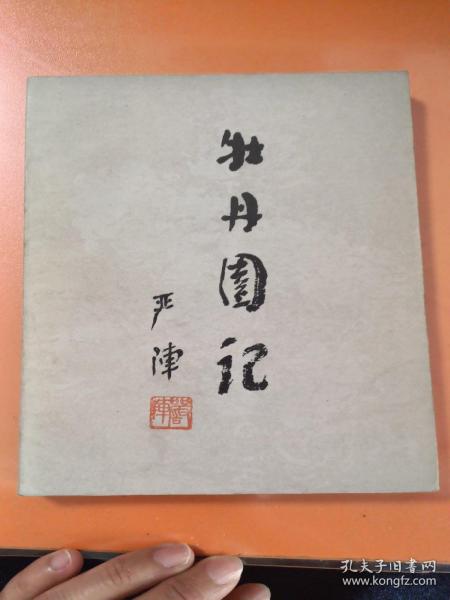 牡丹园记
严陣
嚴陣
孔夫子旧书网
www.kongfz.com